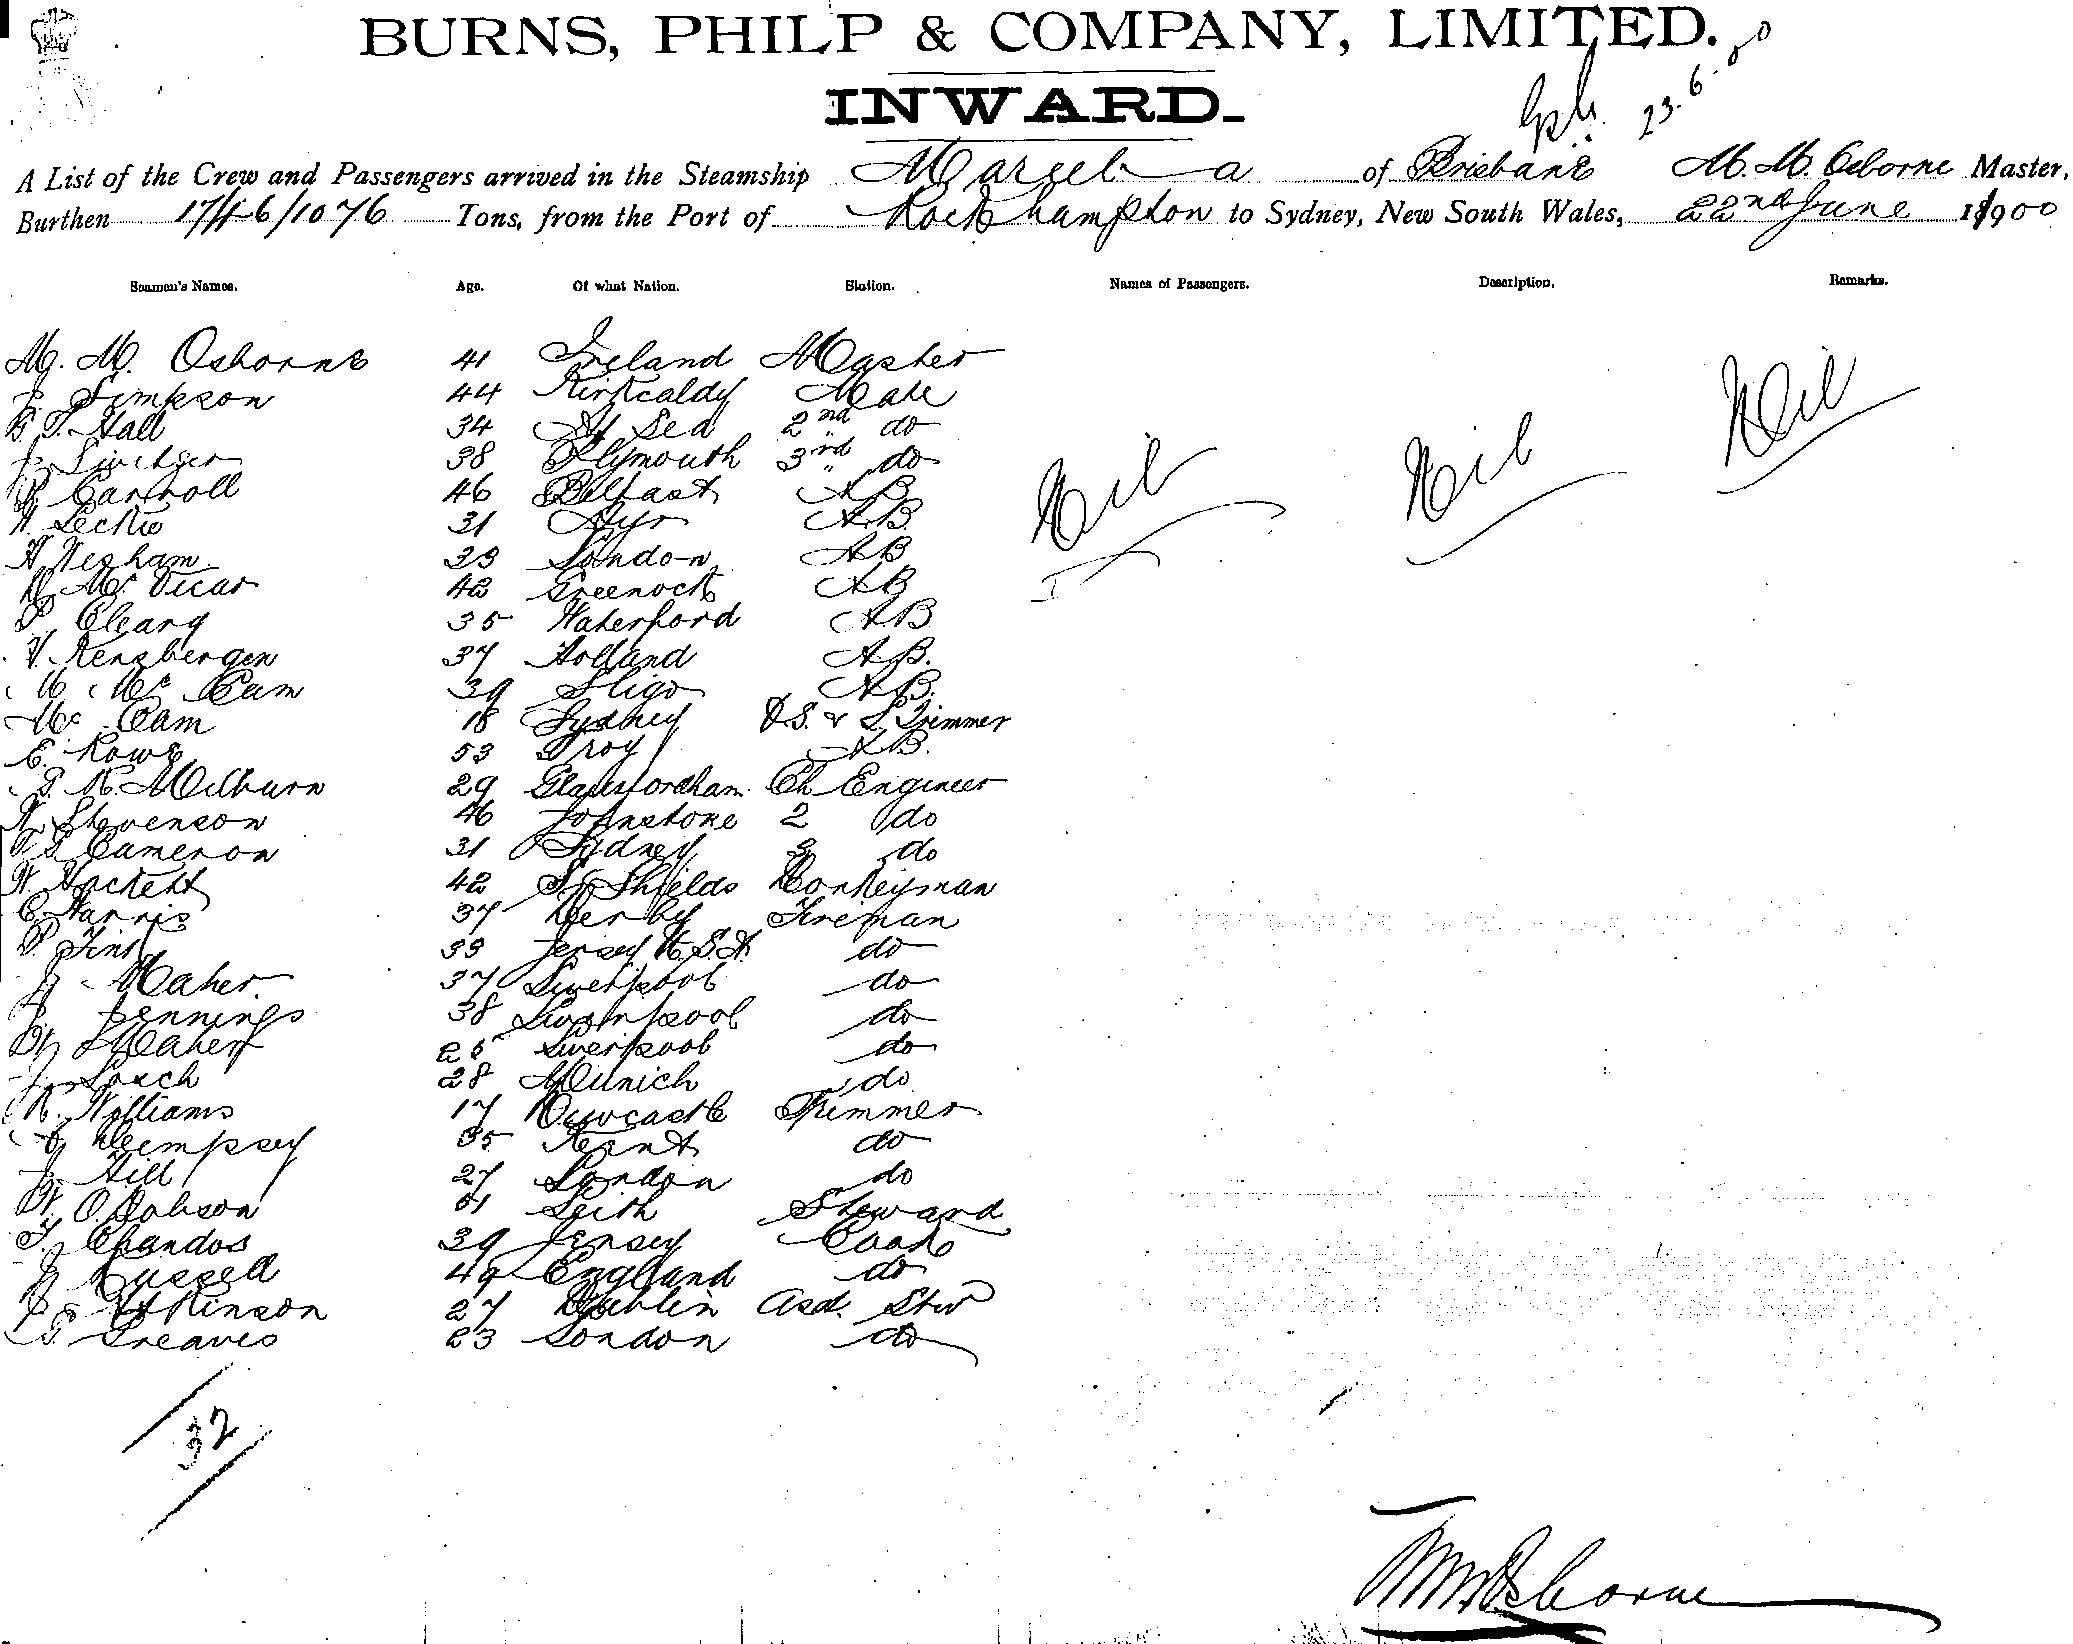 BURNS, PHILP & COMPANY, LIMITED.
INWARD.
23.6.00
A List of the Crew and Passengers arrived in the Steamship Mareeba of Brisbane M. M. Osborne Master,
Burthen 1746/1076 Tons, from the Port of Rockhampton to Sydney, New South Wales, 22nd June 1900
Seamen's Names. Age. Of what Nation. Station. Names of Passengers. Description. Remarks.
M. M. Osborne 41 Ireland Master Nil Nil Nil
J. Simpson 44 Kirkcaldy Mate
T. Hall 34 At Sea 2nd do
38 Plymouth 3rd do
Carroll 46 Belfast AB
Leckie 31 Ayr AB
Nesham 33 London AB
Mc Vicar 42 Greenock AB
P Cleary 35 Waterford AB
V. Rensbergen 37 Holland AB.
Mc Cam 39 Sligo AB.
Mc Cam 18 Sydney O.S. & L. Trimmer
E. Rowe 53 Troy AB.
Milburn 29 Ch Engineer
Stevenson 46 Johnstone 2 do
Cameron 31 Sydney 3 do
Hackett 42 S. Shields Donkeyman
C. Harris 37 Derby Fireman
33 Jersey U.S.A. do
J Maher 37 Liverpool do
J Jennings 38 Liverpool do
Maher 25 Liverpool do
28 Munich do
R. Williams 17 Newcastle Trimmer
Dempsey 35 Kent do
J. Hill 27 London do
W. O. Dobson 51 Leith Steward
T Chandos 39 Jersey Cook
J Russell 49 England do
Atkinson 27 Dublin Asst. Stw
Greaves 23 London do
32
M M Osborne